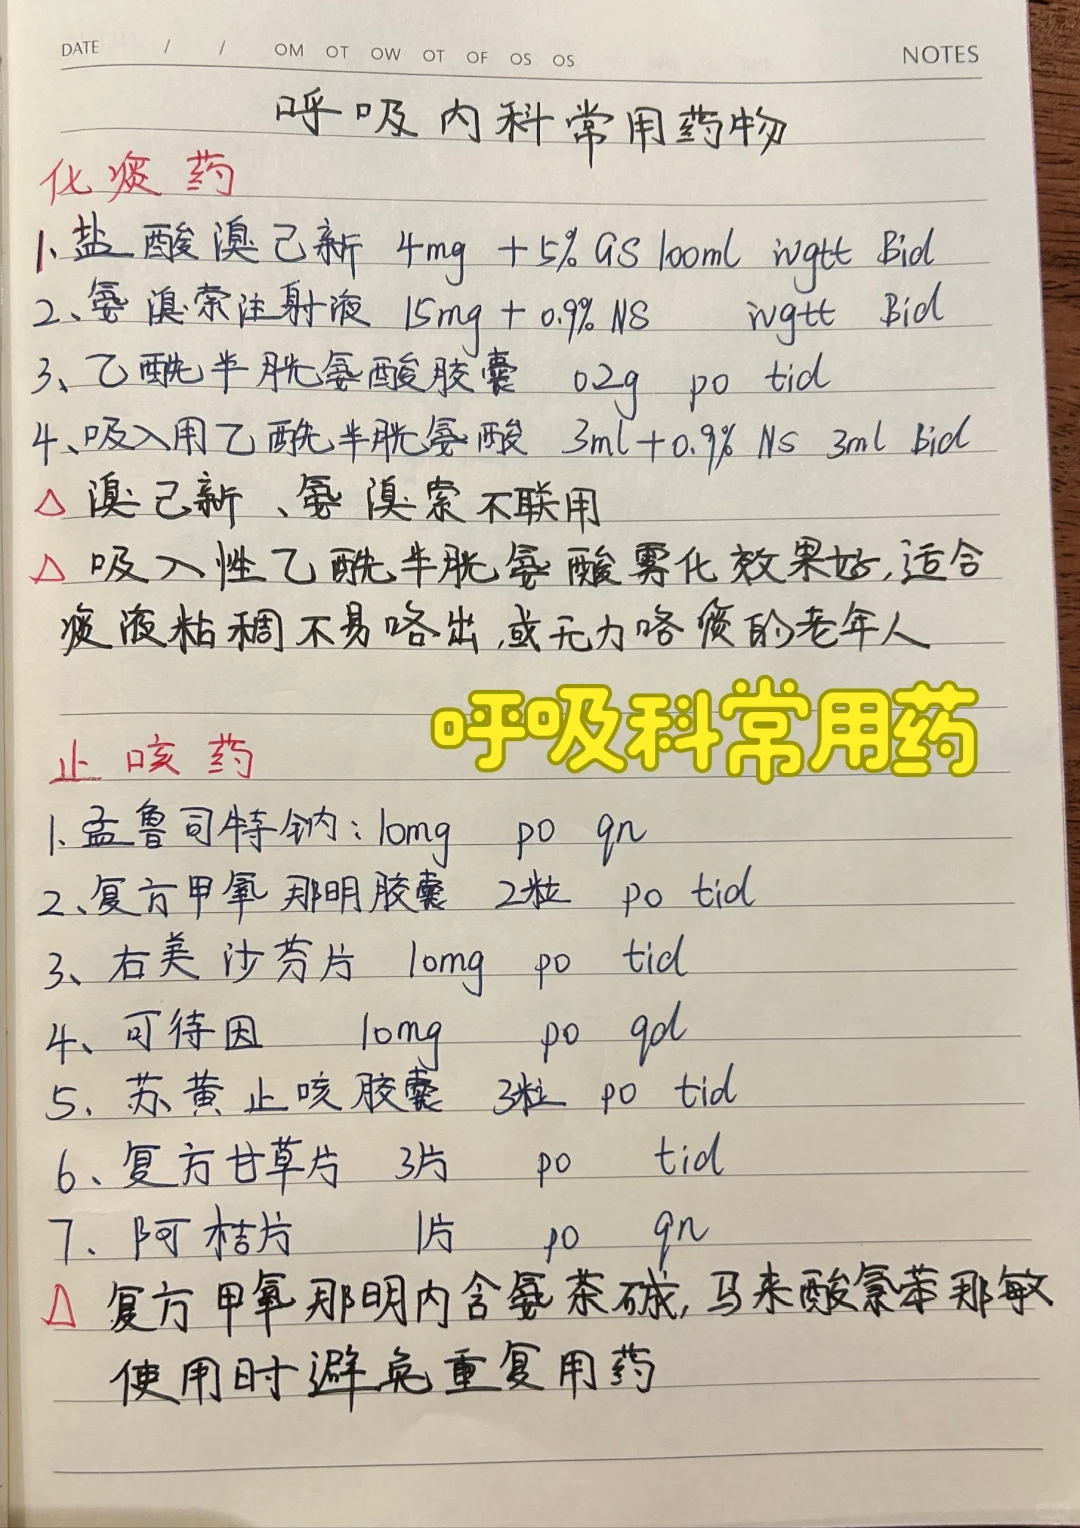 DATE / / OM OT OW OT OF OS OS NOTES
呼吸内科常用药物
化痰药
1、盐酸溴己新 4mg +5% GS 100ml ivgtt Bid
2、氨溴索注射液 15mg + 0.9% NS ivgtt Bid
3、乙酰半胱氨酸胶囊 02g po tid
4、吸入用乙酰半胱氨酸 3ml+0.9% NS 3ml Bid
△ 溴己新、氨溴索不联用
△ 吸入性乙酰半胱氨酸雾化效果好,适合
痰液粘稠不易咯出,或无力咯痰的老年人
呼吸科常用药
止咳药
1.孟鲁司特钠:10mg po qn
2、复方甲氧那明胶囊 2粒 po tid
3、右美沙芬片 10mg po tid
4、可待因 10mg po qd
5、苏黄止咳胶囊 3粒 po tid
6、复方甘草片 3片 po tid
7、阿桔片 1片 po qn
△ 复方甲氧那明内含氨茶碱,马来酸氯苯那敏
使用时避免重复用药